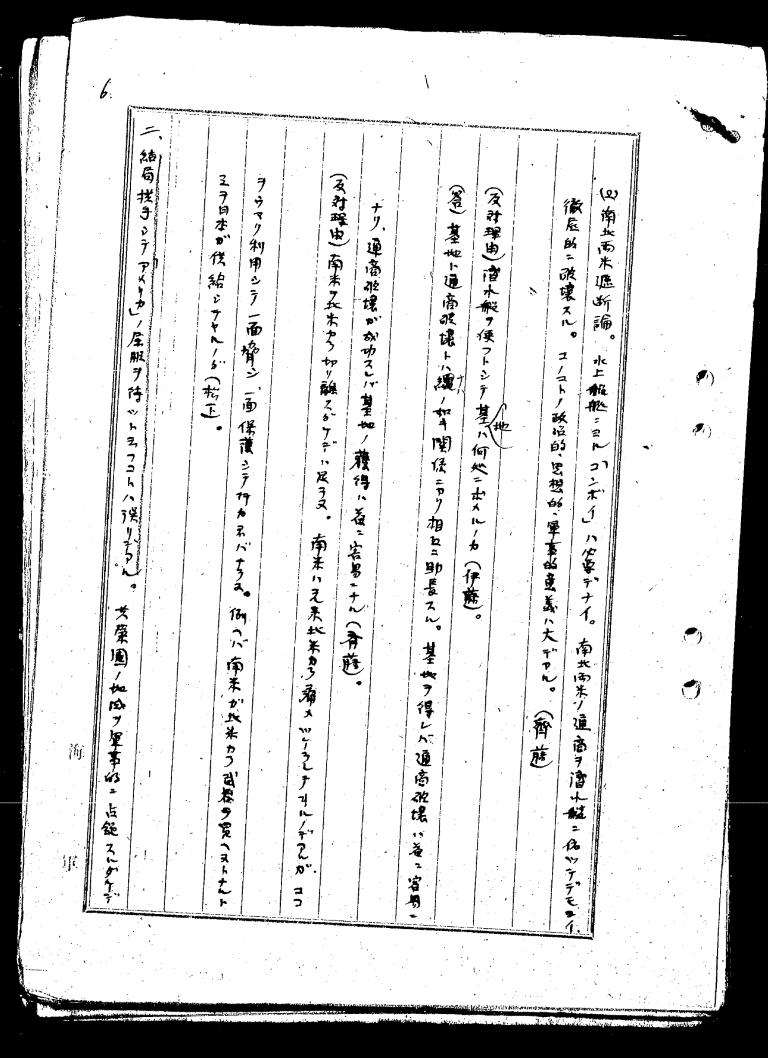 6.
(2) 南北両米遮断論。水上艦艇ニヨル「コンボイ」ハ必要デナイ。南北両米ノ通商ヲ潜水艇ニ依ツテデモヨイ、
徹底的ニ破壊スル。コノコトノ政治的、思想的、軍事的意義ハ大デアル。(齊藤)
(反対理由) 潜水艇ヲ使フトシテ基地ハ何処ニ求メルノカ(伊藤)。
(答) 基地ト通商破壊トハ縄ノ如キ関係ニアリ相互ニ助長スル。基地ヲ得レバ通商破壊ハ益ニ容易ニ
ナリ、通商破壊ガ成功スレバ基地ノ獲得ハ益ニ容易ニナル(齊藤)。
(反対理由) 南米ヲ北米カラ切リ離スダケデハ足ラヌ。南米ハ元来北米カラ痛メツケラレテ井ルノデアルガ、ココ
ヲウマク利用シテ一面脅シ、一面保護シテ行カネバナラヌ。例ヘバ南米ガ北米カラ武器ヲ買ヘヌトナルト
ミヲ日本ガ供給シテヤルノダ(松下)。
二、結局 拱手シテ「アメリカ」ノ屈服ヲ待ツト云フコトハ誤リデアル。共栄圏ノ地域ヲ軍事的ニ占領スルダケデ
海軍